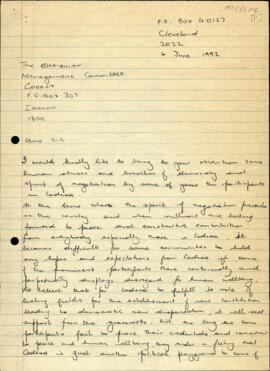 P.O. BOX 40137
Cleveland
2022
6 June 1992
The CHAIRMAN
Management Committee
CODESA
P.O. BOX 307
ISANDO
1600
Dear Sir
I would kindly like to bring to your attention some
human abuses and breaches of democracy and
spirit of negotiation by some of your the participants
in Codesa.
At the time where the spirit of negotiation prevails
in the country and when millions are looking
forward to peace and constructive contribution
from everybody especially those in Codesa. It
becomes difficult for some communities to hold
any hopes and expectations from Codesa if some
of the prominent participants have continually and
perpetually displayed disregard to human wellbeing.
We believe that for Codesa to fulfill its role of
leading fields for the establishment of new constitution
leading to democratic new dispensation, it will need
support from the grassroots. But as long as some
participants fail to prove their credentials and commitment
to peace and human wellbeing, they add a feeling that
Codesa is just another political playground to some of